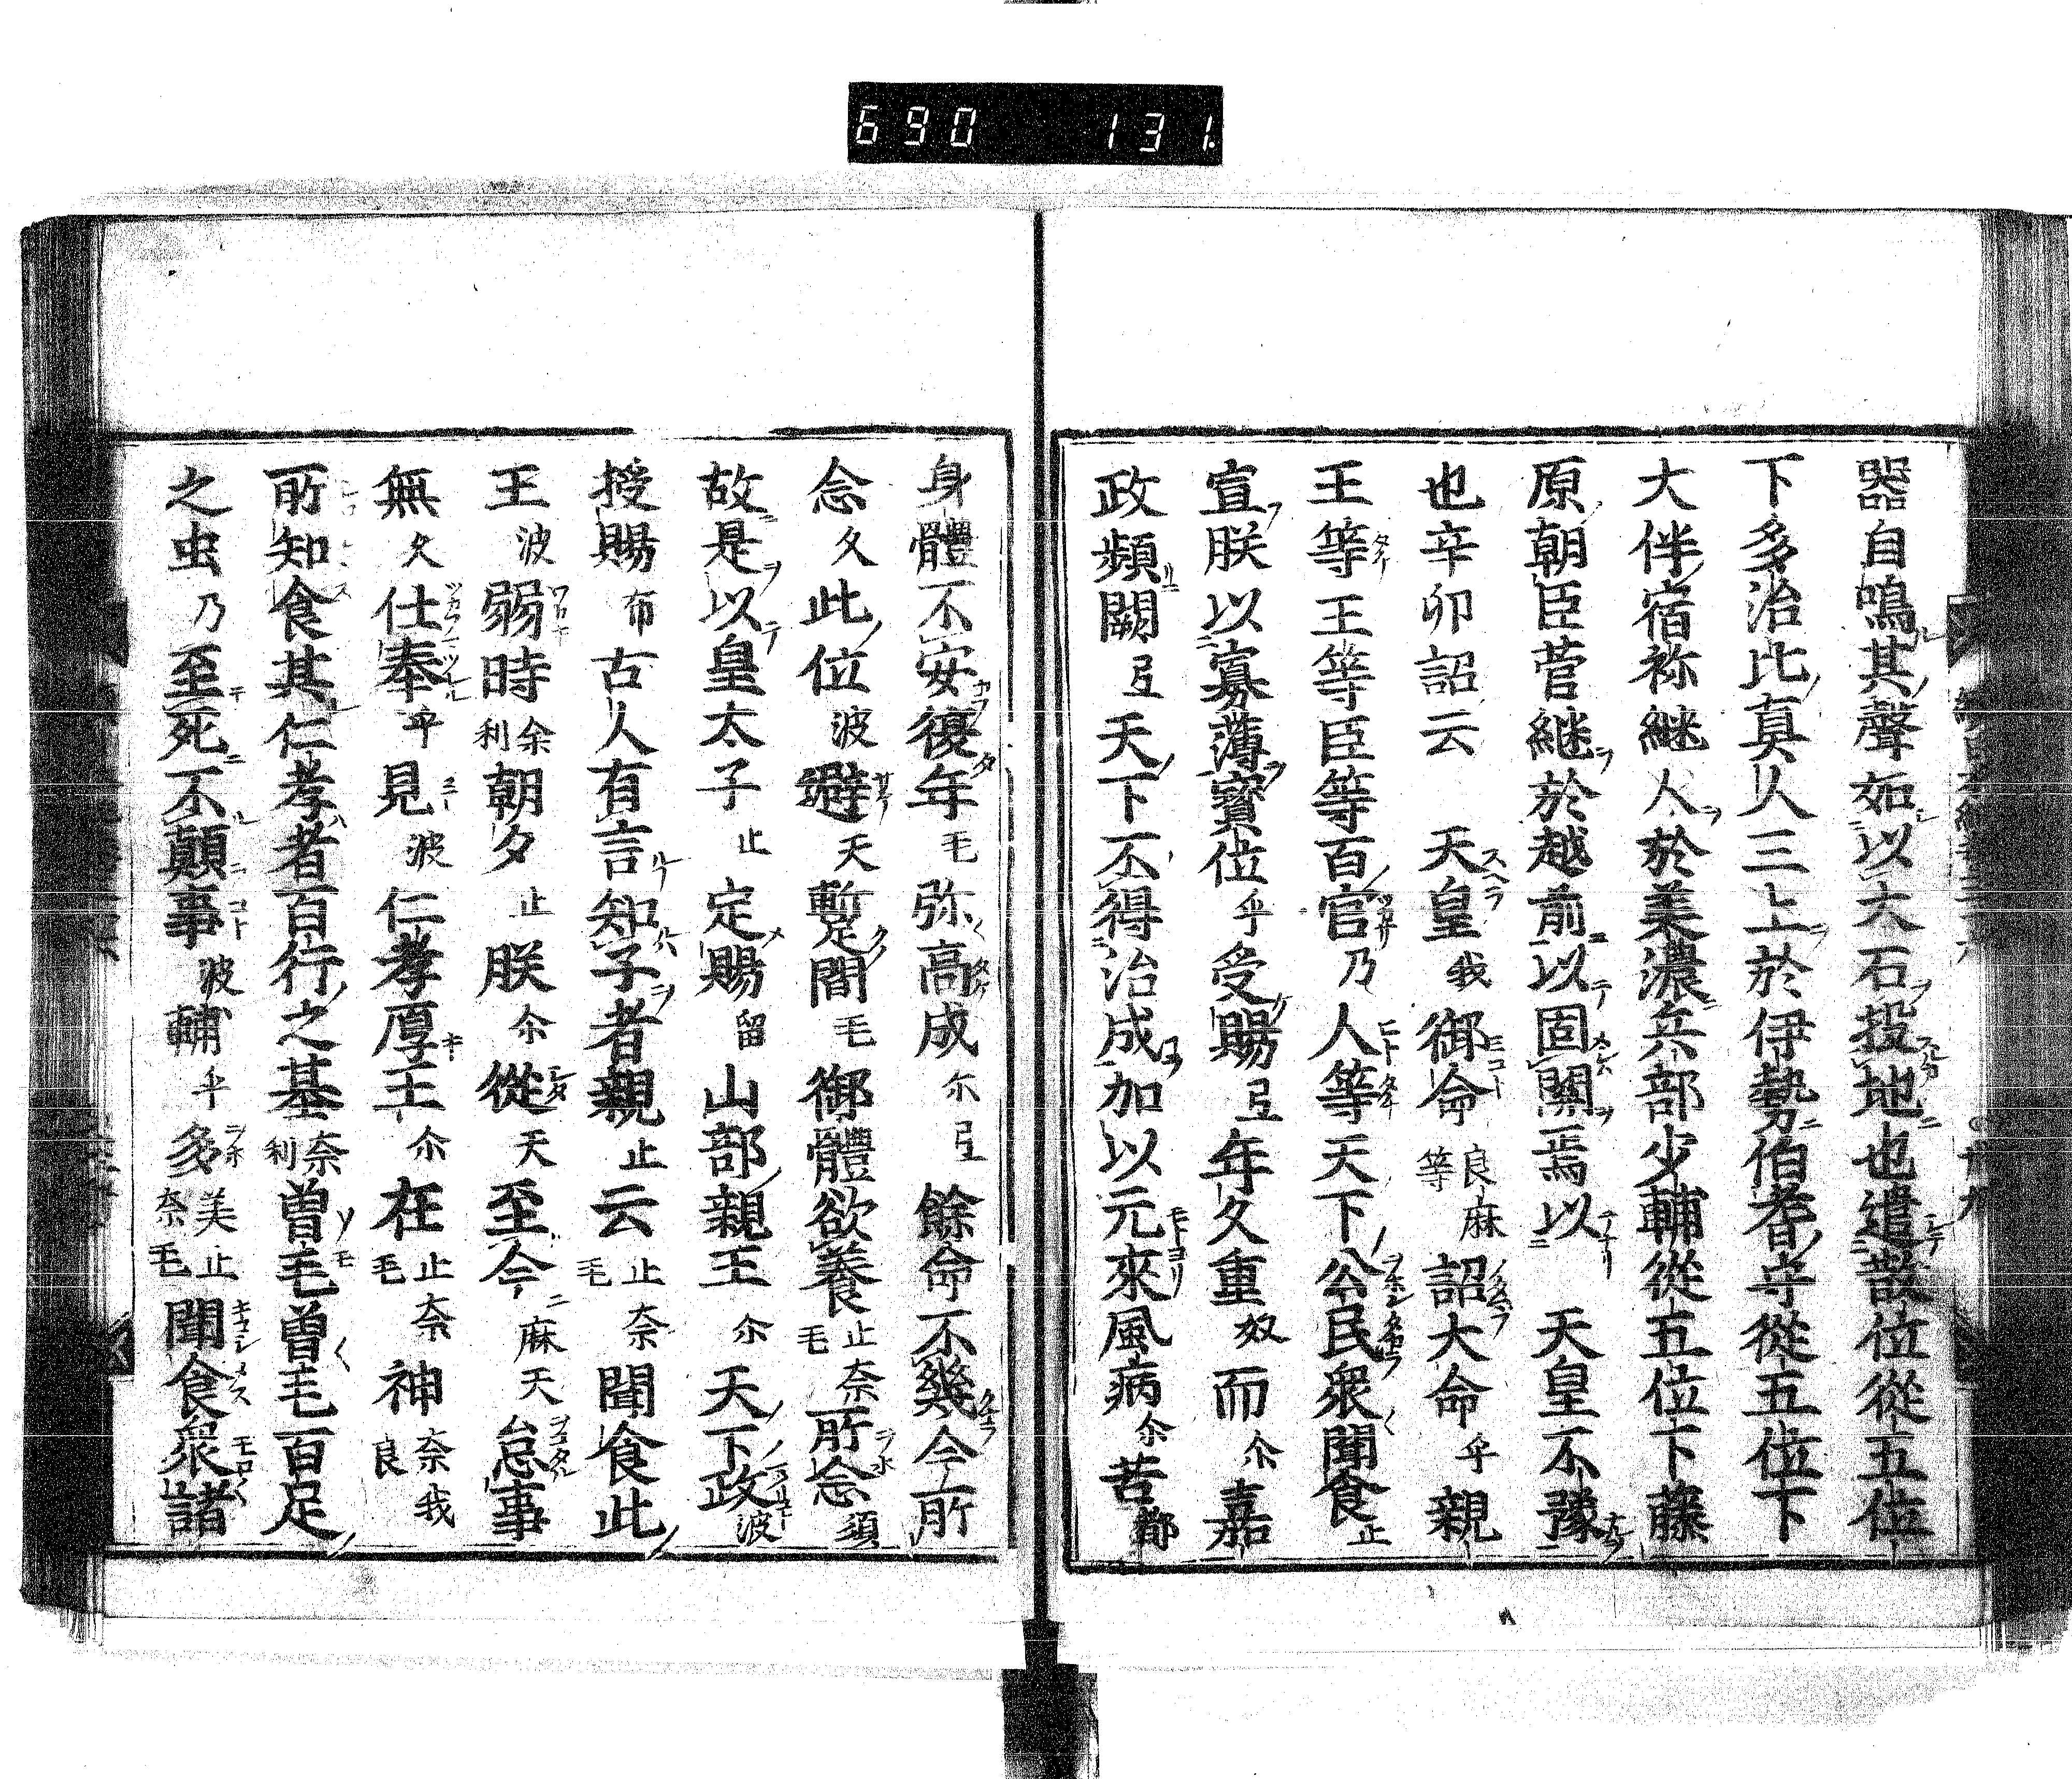 690 131.
器自鳴其聲如以大石投地也遣散位從五位
下多治比真人三上於伊勢伯耆守從五位下
大伴宿祢継人於美濃兵部少輔從五位下藤
原朝臣菅継於越前以固關焉以 天皇不豫
也辛卯詔云 天皇我御命良麻等詔大命乎親
王等王等臣等百官乃人等天下公民衆聞食止
宣朕以寡薄寳位乎受賜弖年久重奴而尓嘉
政頻闕弖天下不得治成加以元來風病尓苦都
身體不安復年毛弥高成尓弖餘命不幾今所
念久此位波避天暫間毛御體欲養止奈毛所念須
故是以皇太子止定賜留山部親王尓天下政波
授賜布古人有言知子者親止云止奈毛聞食此
王波弱時余利朝夕止朕尓從天至今麻天怠事
無久仕奉乎見波仁孝厚王尓在止奈毛神奈我良
所知食其仁孝者百行之基奈利曽毛曽毛百足
之虫乃至死不顛事波輔乎多美止奈毛聞食衆諸